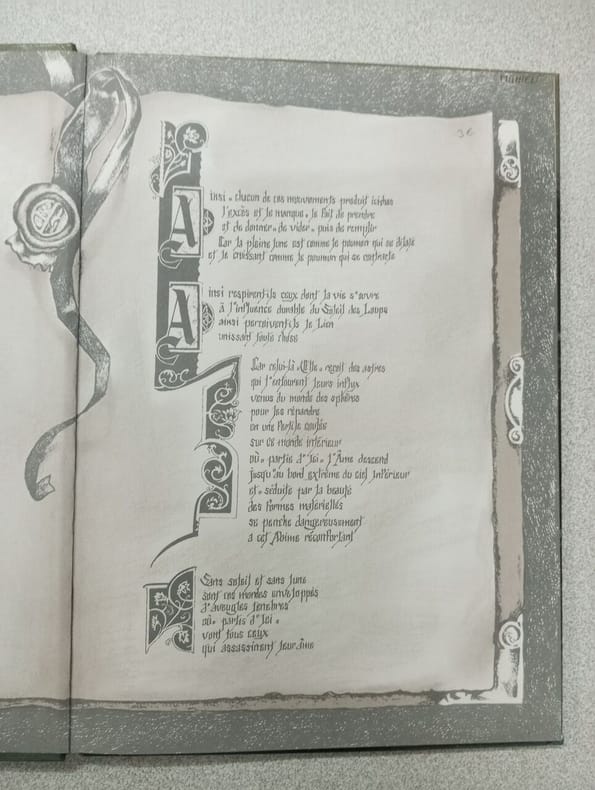 36
Ainsi • chacun de ces mouvements produit ici-bas
l'excès et le manque • le fait de prendre
et de donner • de vider • puis de remplir
Car la pleine lune est comme le poumon qui se dilate
et le croissant comme le poumon qui se contracte
Ainsi respirent-ils ceux dont la vie s'ouvre
à l'influence durable du Soleil des Loups
ainsi perçoivent-ils le Lien
unissant toute chose
Car celui-là • Elle • reçoit des astres
qui l'entourent leurs influx
venus du monde des sphères
pour les répandre
en une fertile coulée
sur ce monde inférieur
où • partie d'Ici • l'Âme descend
jusqu'au bord extrême du ciel inférieur
et • séduite par la beauté
des formes matérielles
se penche dangereusement
à cet Abîme réconfortant
Sans soleil et sans lune
sont ces mondes enveloppés
d'aveugles ténèbres
où • partis d'Ici •
vont tous ceux
qui assassinent leur âme